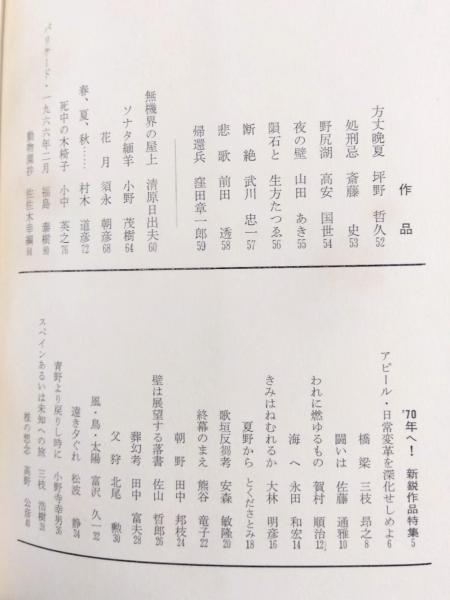 作品
方丈晩夏 坪野 哲久 52
処刑忌 斎藤 史 53
野尻湖 高安 国世 54
夜の壁 山田 あき 55
隕石と 生方たつゑ 56
断絶 武川 忠一 57
悲歌 前田 透 58
帰還兵 窪田章一郎 59
無機界の屋上 清原日出夫 60
ソナタ緬羊 小野 茂樹 64
花月 須永 朝彦 68
春、夏、秋…… 村木 道彦 72
死中の木椅子 小中 英之 76
バリケード・一九六六年二月 福島 泰樹 80
動物園抄 佐佐木幸綱 84
'70年へ! 新鋭作品特集 5
アピール・日常変革を深化せしめよ 6
橋梁 三枝 昂之 8
闘いは 佐藤 通雅 10
われに燃ゆるもの 賀村 順治 12
海へ 永田 和宏 14
きみはねむれるか 大林 明彦 16
夏野から とくださとみ 18
歌垣反芻考 安森 敏隆 20
終幕のまえ 熊谷 竜子 22
朝野 田中 邦枝 24
壁は展望する落書 佐山 哲郎 26
葬幻考 田中 富夫 28
父狩 北尾 勲 30
風・鳥・太陽 富沢 久一 32
遠き夕ぐれ 松波 静 34
青野より戻りし時に 小野寺幸男 36
スペインあるいは未知への旅 三枝 浩樹 38
椎の想念 高野 公彦 40